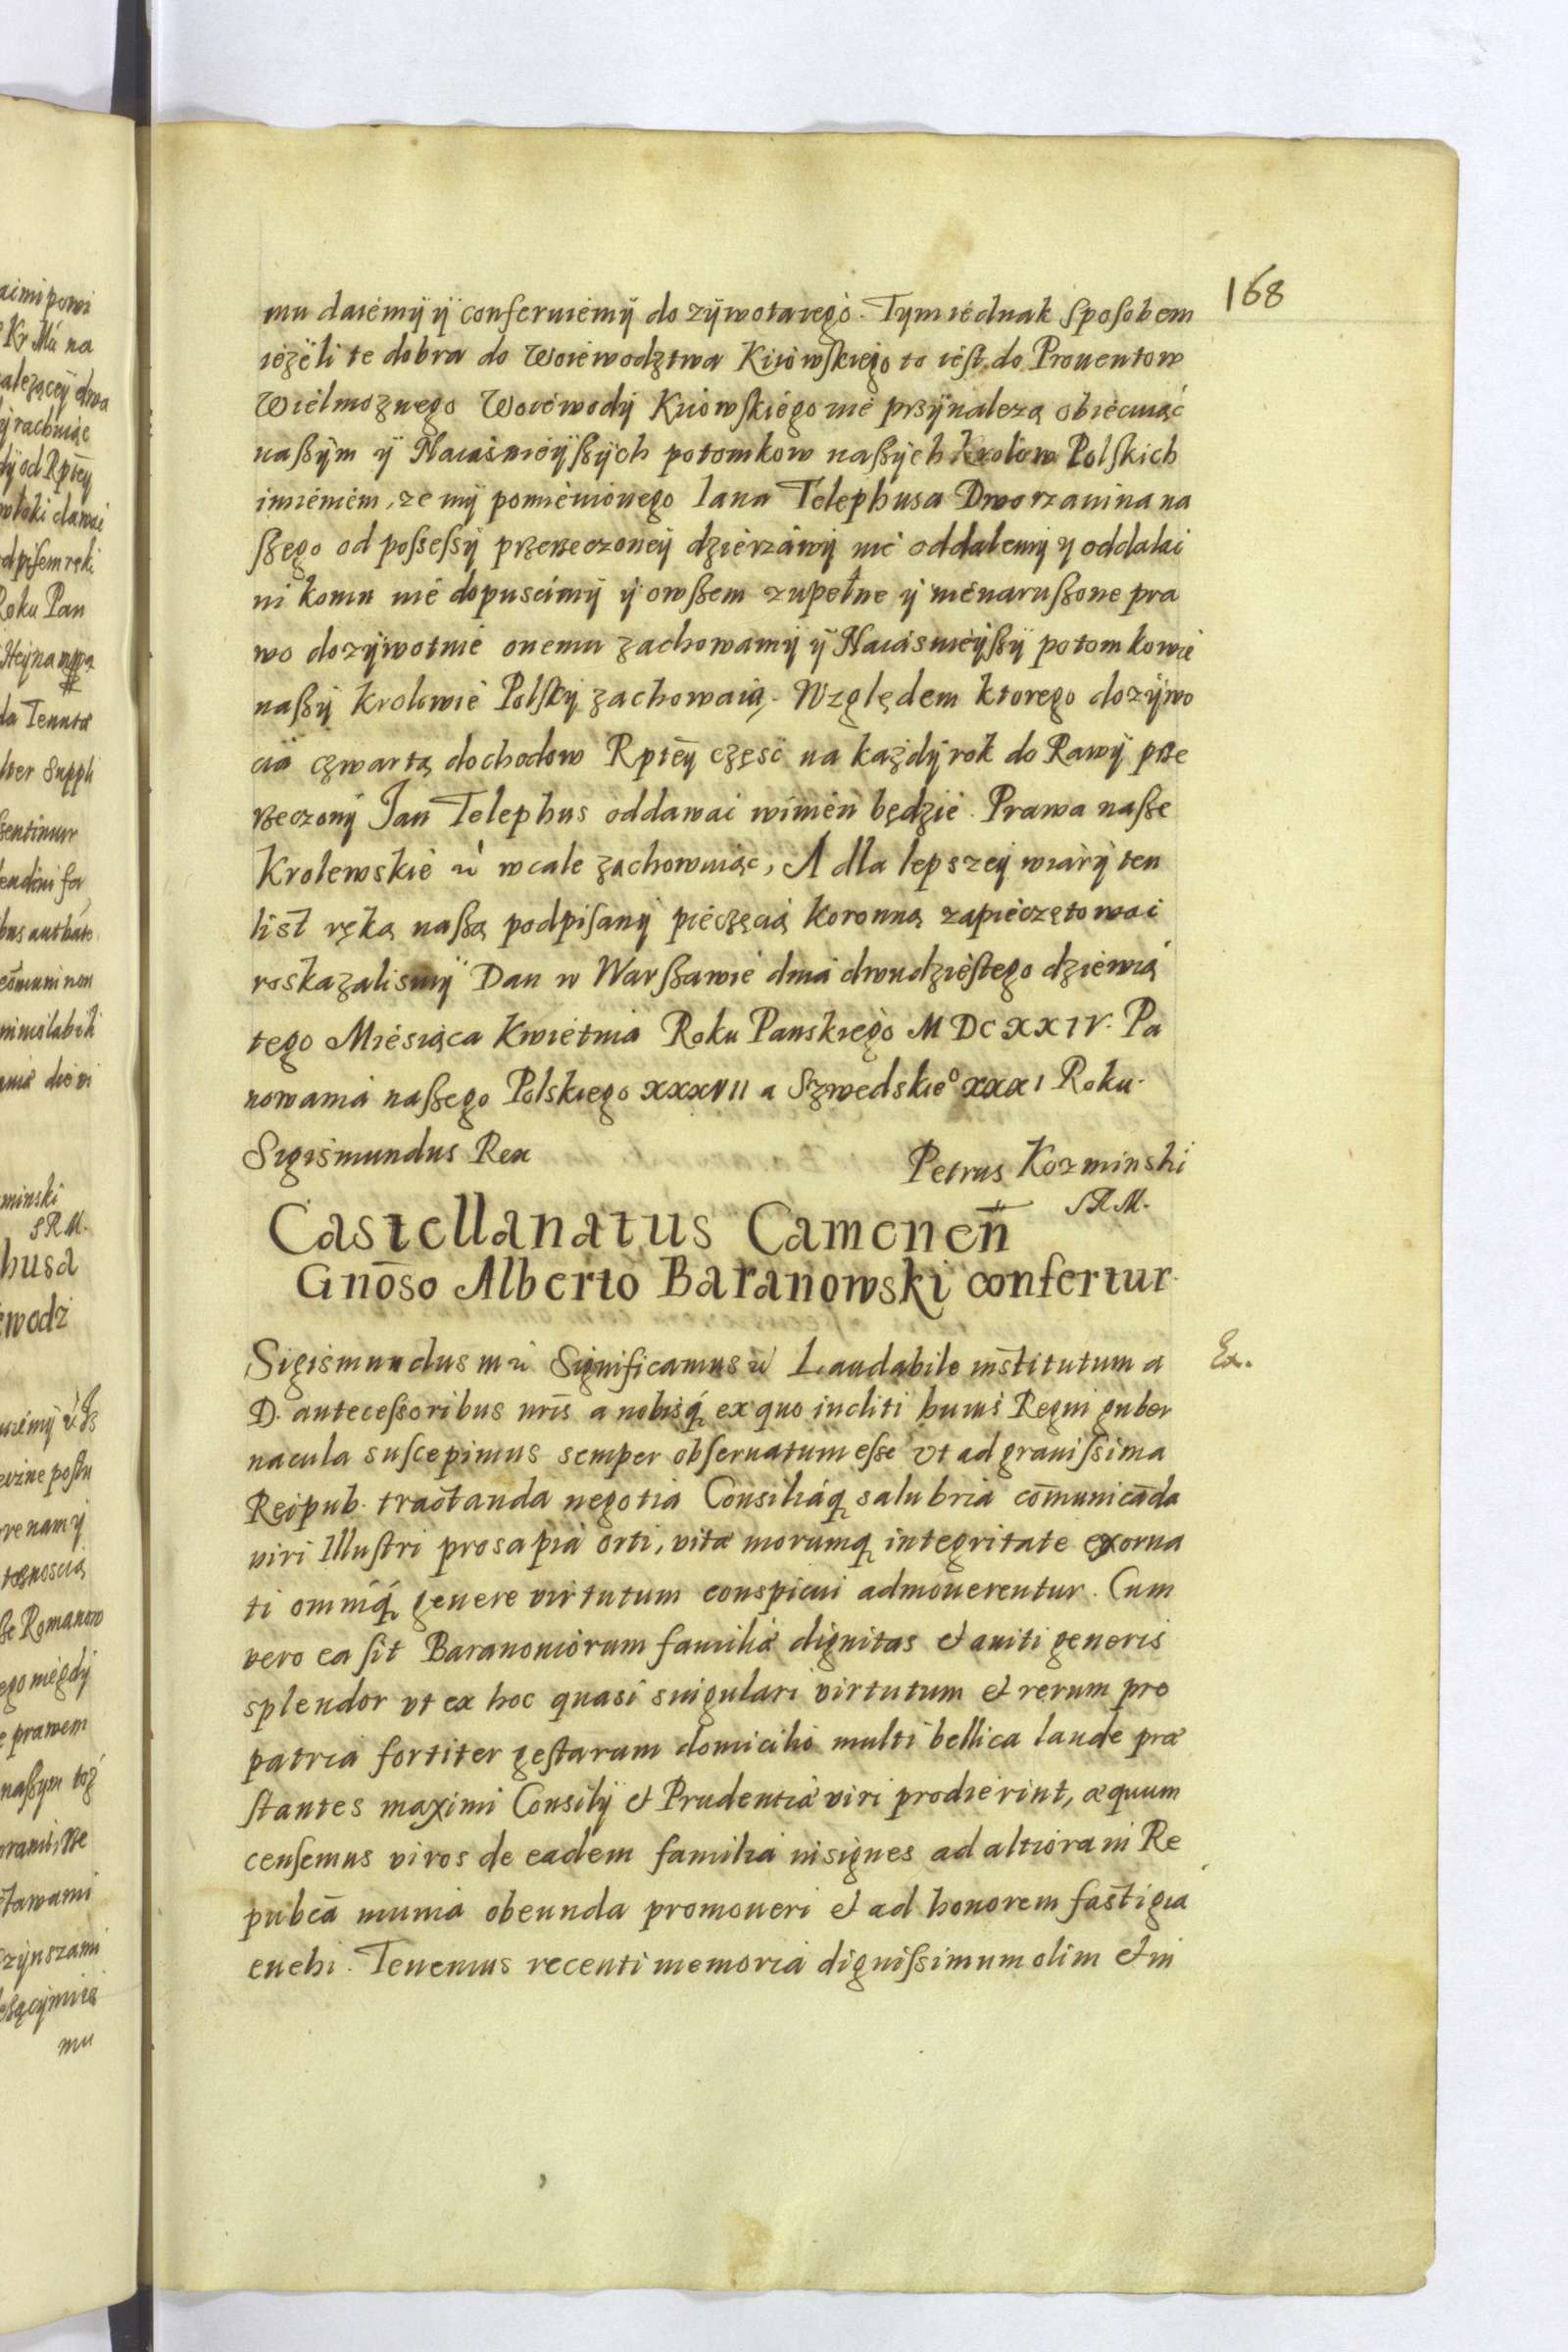 168
mu daiemÿ ÿ conferuiemÿ do zÿwota iego. Tym iednak sposobem
ieżeli te dobra do Woiewodztwa Kiiowskiego to iest do Prouentow
Wielmoznego Woiewodÿ Kiiowskiego nie przÿnalezą obiecuiąc
naszÿm ÿ Naiasnieÿszÿch potomkow naszÿch Krolow Polskich
imieniem, ze mÿ pomienionego Iana Telephusa Dworzanina na
szego od possessÿ przerzeczoneÿ dzierżawÿ nie oddalemÿ y oddalai
nikomu nie dopuscimÿ ÿ owszem zupełne ÿ nienaruszone pra
wo dozÿwotnie onemu zachowamÿ ÿ Naiasnieÿszÿ potomkowie
naszÿ Krolowie Polscÿ zachowaią. Względem ktorego dozÿwo
cia czwartą dochodow Rpteÿ część na każdÿ rok do Rawÿ prze
rzeczonÿ Jan Telephus oddawai winien będzie. Prawa nasze
Krolewskie etc wcale zachowuiąc, A dla lepszeÿ wiarÿ ten
list ręką naszą podpisanÿ pieczęcią koronną zapieczętowai
roskazalismÿ Dan w Warszawie dnia dwudziestego dziewią
tego Miesiąca Kwietnia Roku Panskiego MDCXXIV. Pa
nowania naszego Polskiego XXXVII a Szwedskieo XXXI Roku.
Sigismundus Rex
Petrus Kozminski
SRM.
Castellanatus Camenen̄
Gnōso Alberto Baranowski confertur.
Ex.
Sigismundus III etc Significamus etc Laudabile institutum a
D. antecessoribus nr̄is a nobisq́ ex quo incliti huius Regni guber
nacula suscepimus semper obseruatum esse vt ad grauissima
Reipub. tractanda negotia Consiliáq salubria com̄unicāda
viri Illustri prosapia orti, vitæ morumq integritate exorna
ti omniq́ genere virtutum conspicui admouerentur. Cum
vero ea sit Baranouiorum familiæ dignitas et auiti generis
splendor vt ex hoc quasi singulari virtutum et rerum pro
patria fortiter gestarum domicilio multi bellica laude præ
stantes maximi Consilÿ et Prudentiæ viri prodierint, æquum
censemus viros de eadem familia insignes ad altiora in Re
pubcā munia obeunda promoueri et ad honorem fastigia
euehi. Tenemus recenti memoria dignissimum olim et in